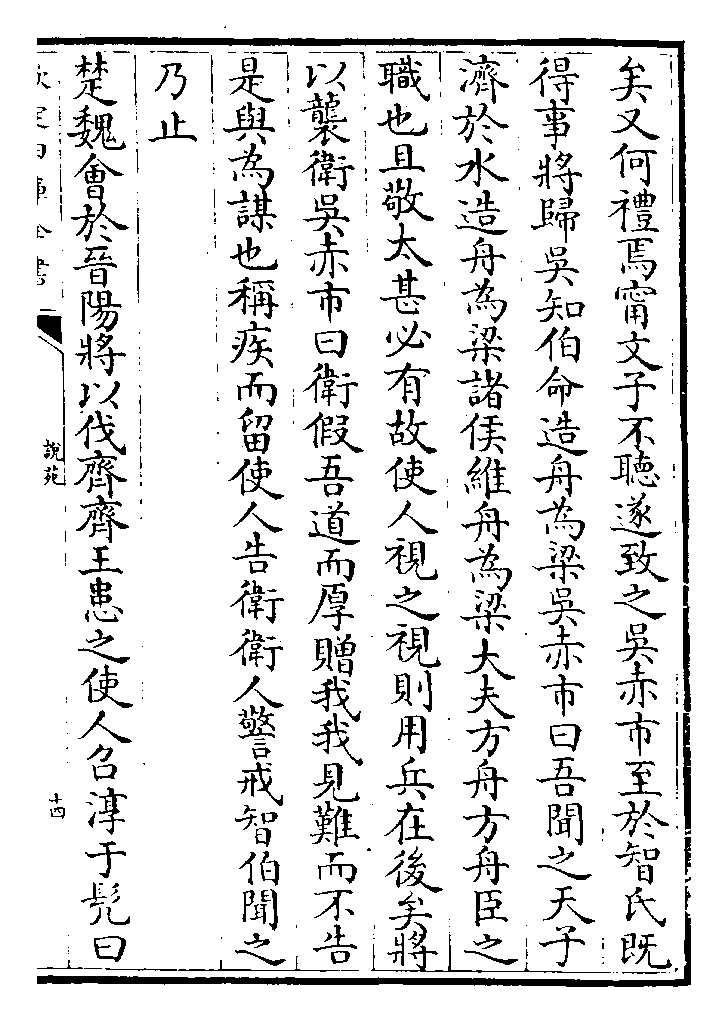 矣又何禮焉甯文子不聽遂致之吳赤市至於智氏既
得事將歸吳知伯命造舟為梁吳赤市曰吾聞之天子
濟於水造舟為梁諸侯維舟為梁大夫方舟方舟臣之
職也且敬太甚必有故使人視之視則用兵在後矣將
以襲衛吳赤市曰衛假吾道而厚贈我我見難而不告
是與為謀也稱疾而留使人告衛衛人警戒智伯聞之
乃止
楚魏會於晉陽將以伐齊齊王患之使人召淳于髠曰
欽定四庫全書
說苑
十四